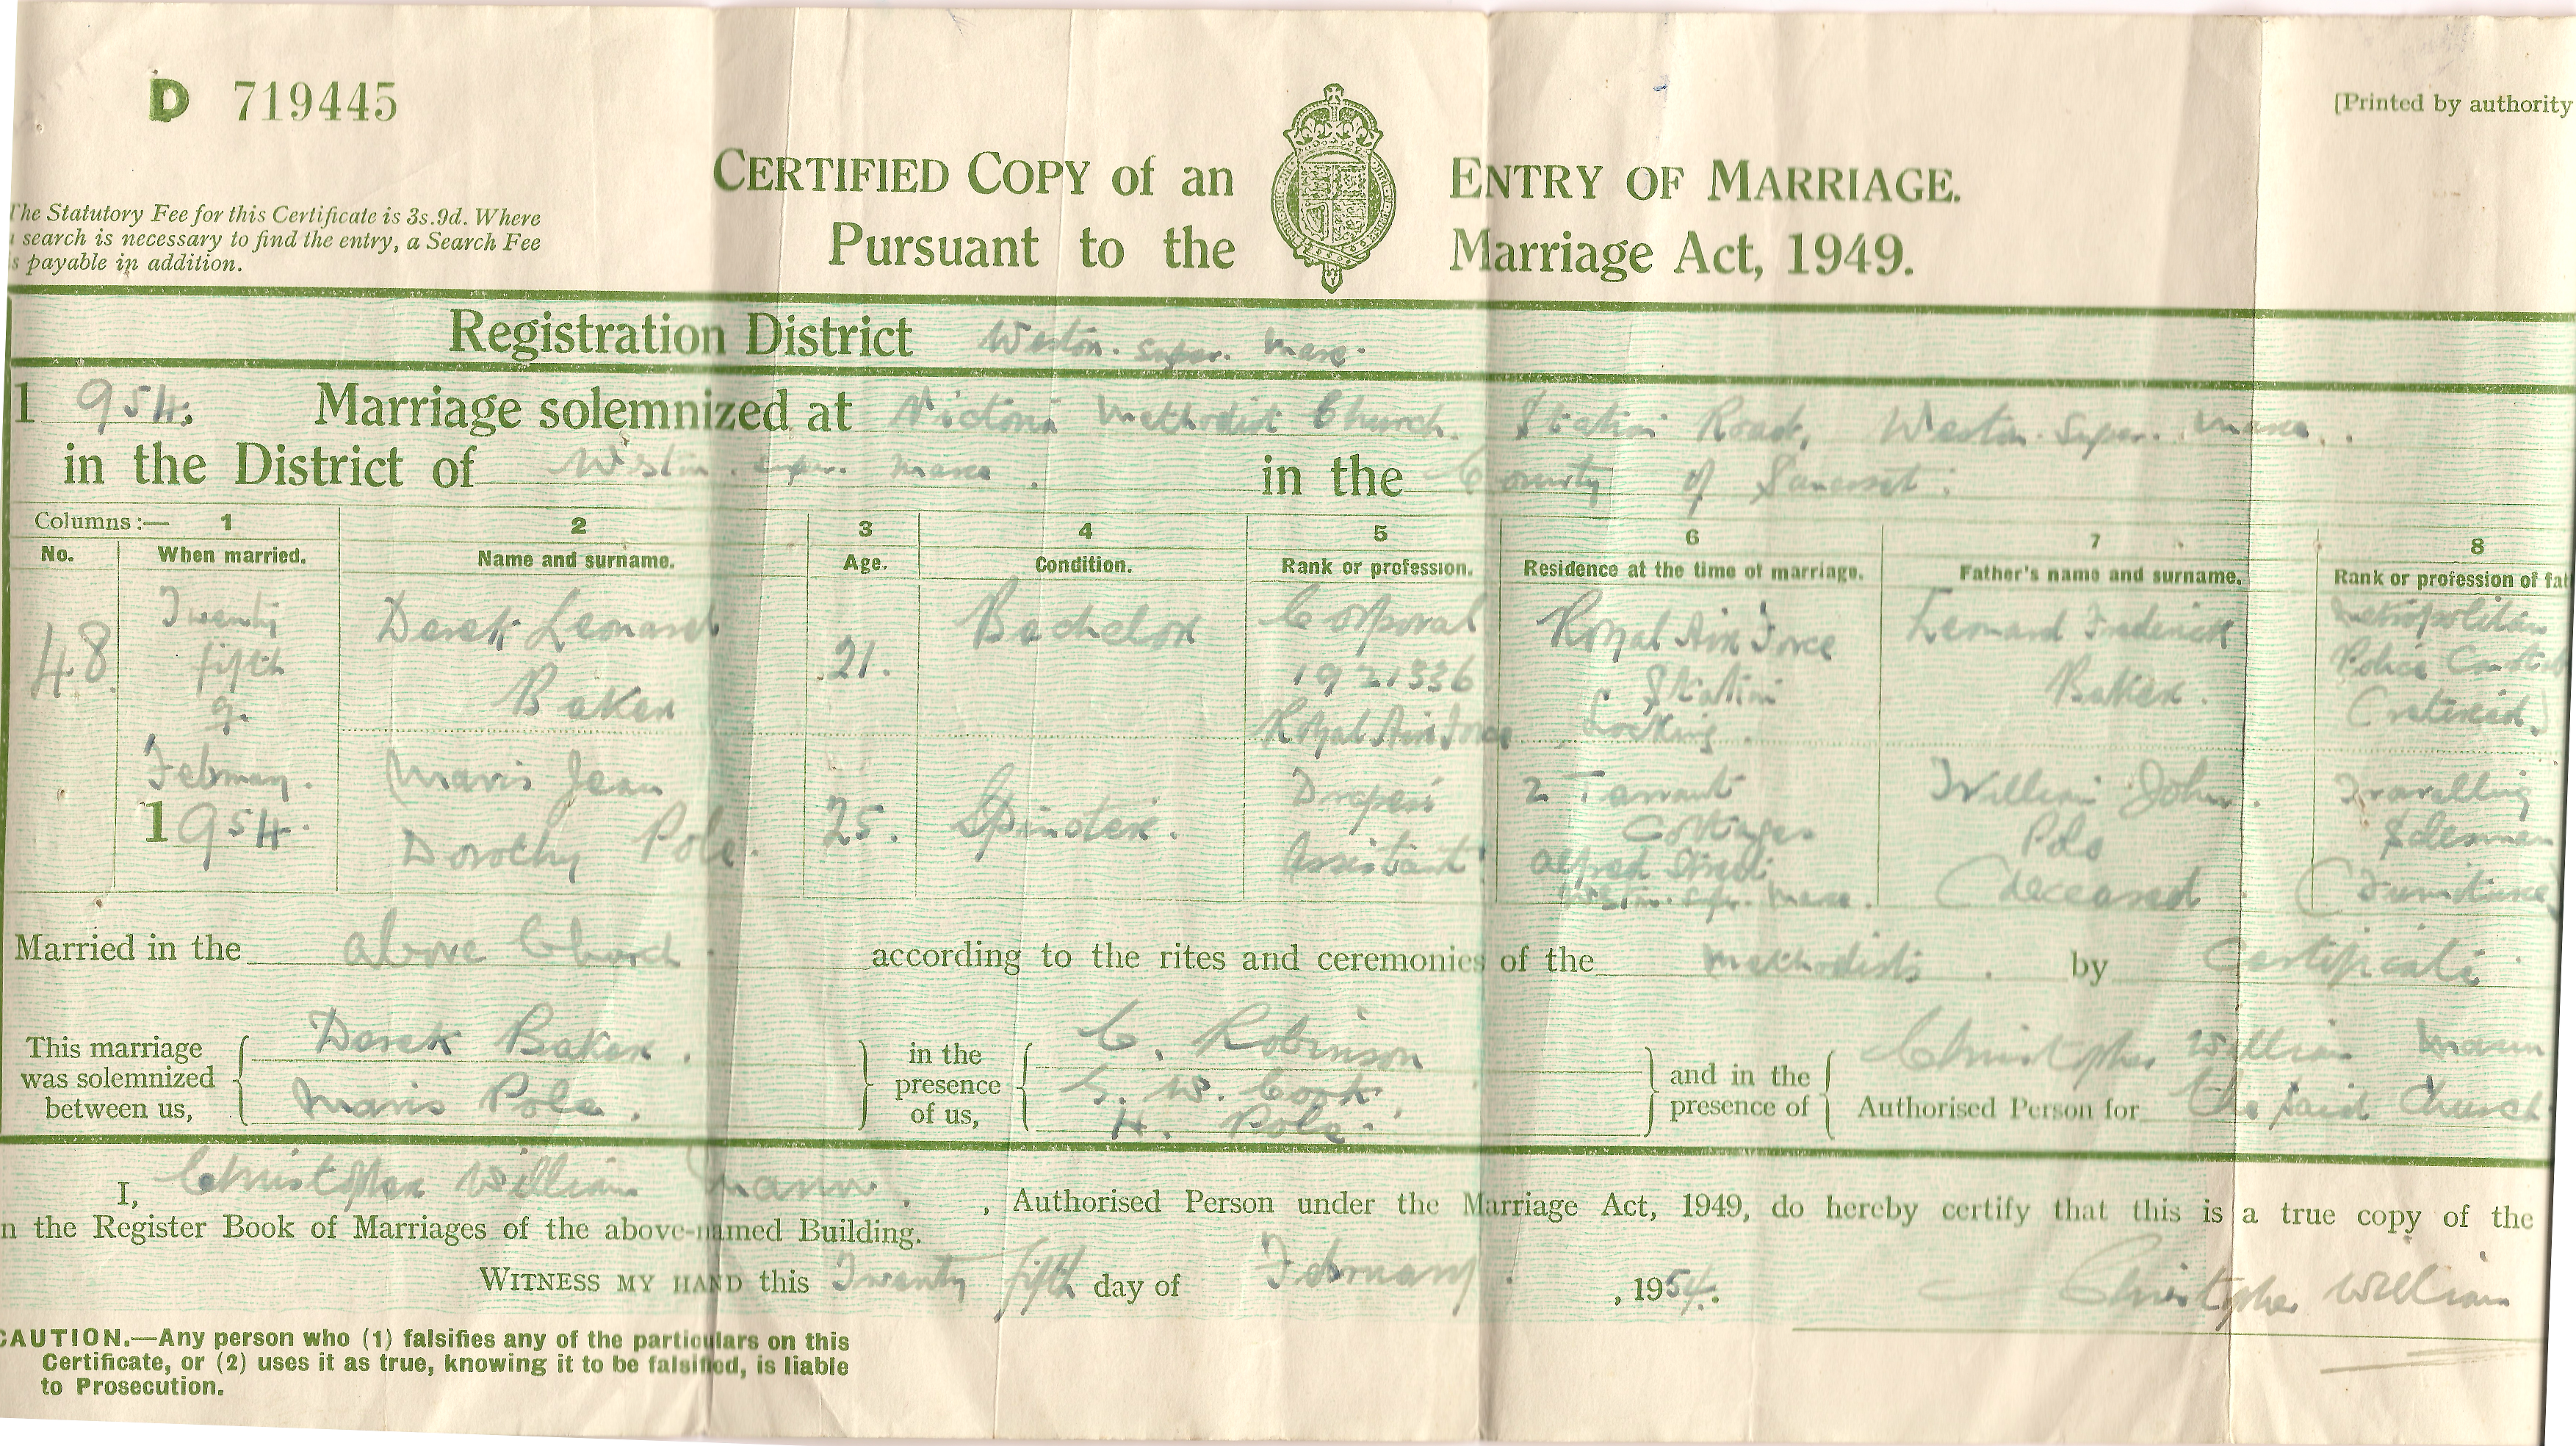 D 719445
[Printed by authority
CERTIFIED COPY of an ENTRY OF MARRIAGE.
Pursuant to the Marriage Act, 1949.
The Statutory Fee for this Certificate is 3s.9d. Where
search is necessary to find the entry, a Search Fee
payable in addition.
Registration District Weston. super. mare.
1954. Marriage solemnized at Victoria Methodist Church. Station Road, Weston. Super. mare.
in the District of Weston. super. mare. in the County of Somerset.
Columns:— 1 2 3 4 5 6 7 8
No. When married. Name and surname. Age. Condition. Rank or profession. Residence at the time of marriage. Father's name and surname. Rank or profession of fat
48. Twenty fifth of February. 1954. Derek Leonard Baker 21. Bachelor Corporal 1921336 Royal Air Force Royal Air Force Station Locking. Leonard Frederick Baker. Metropolitan Police (retired)
Mavis Jean Dorothy Pole. 25. Spinster. Drapers Assistant 2 Tarrant Cottages Alfred Street Weston. super. mare. William John. Pole (deceased) Travelling Salesman (Furniture)
Married in the above Church. according to the rites and ceremonies of the Methodists. by Certificate.
This marriage was solemnized between us, Derek Baker. Mavis Pole. in the presence of us, C. Robinson G. W. Cook. H. Pole. and in the presence of Christopher William Mann Authorised Person for the said Church
I, Christopher William Mann. , Authorised Person under the Marriage Act, 1949, do hereby certify that this is a true copy of the
n the Register Book of Marriages of the above-named Building.
WITNESS MY HAND this Twenty fifth day of February. , 1954. Christopher William
CAUTION.—Any person who (1) falsifies any of the particulars on this
Certificate, or (2) uses it as true, knowing it to be falsified, is liable
to Prosecution.